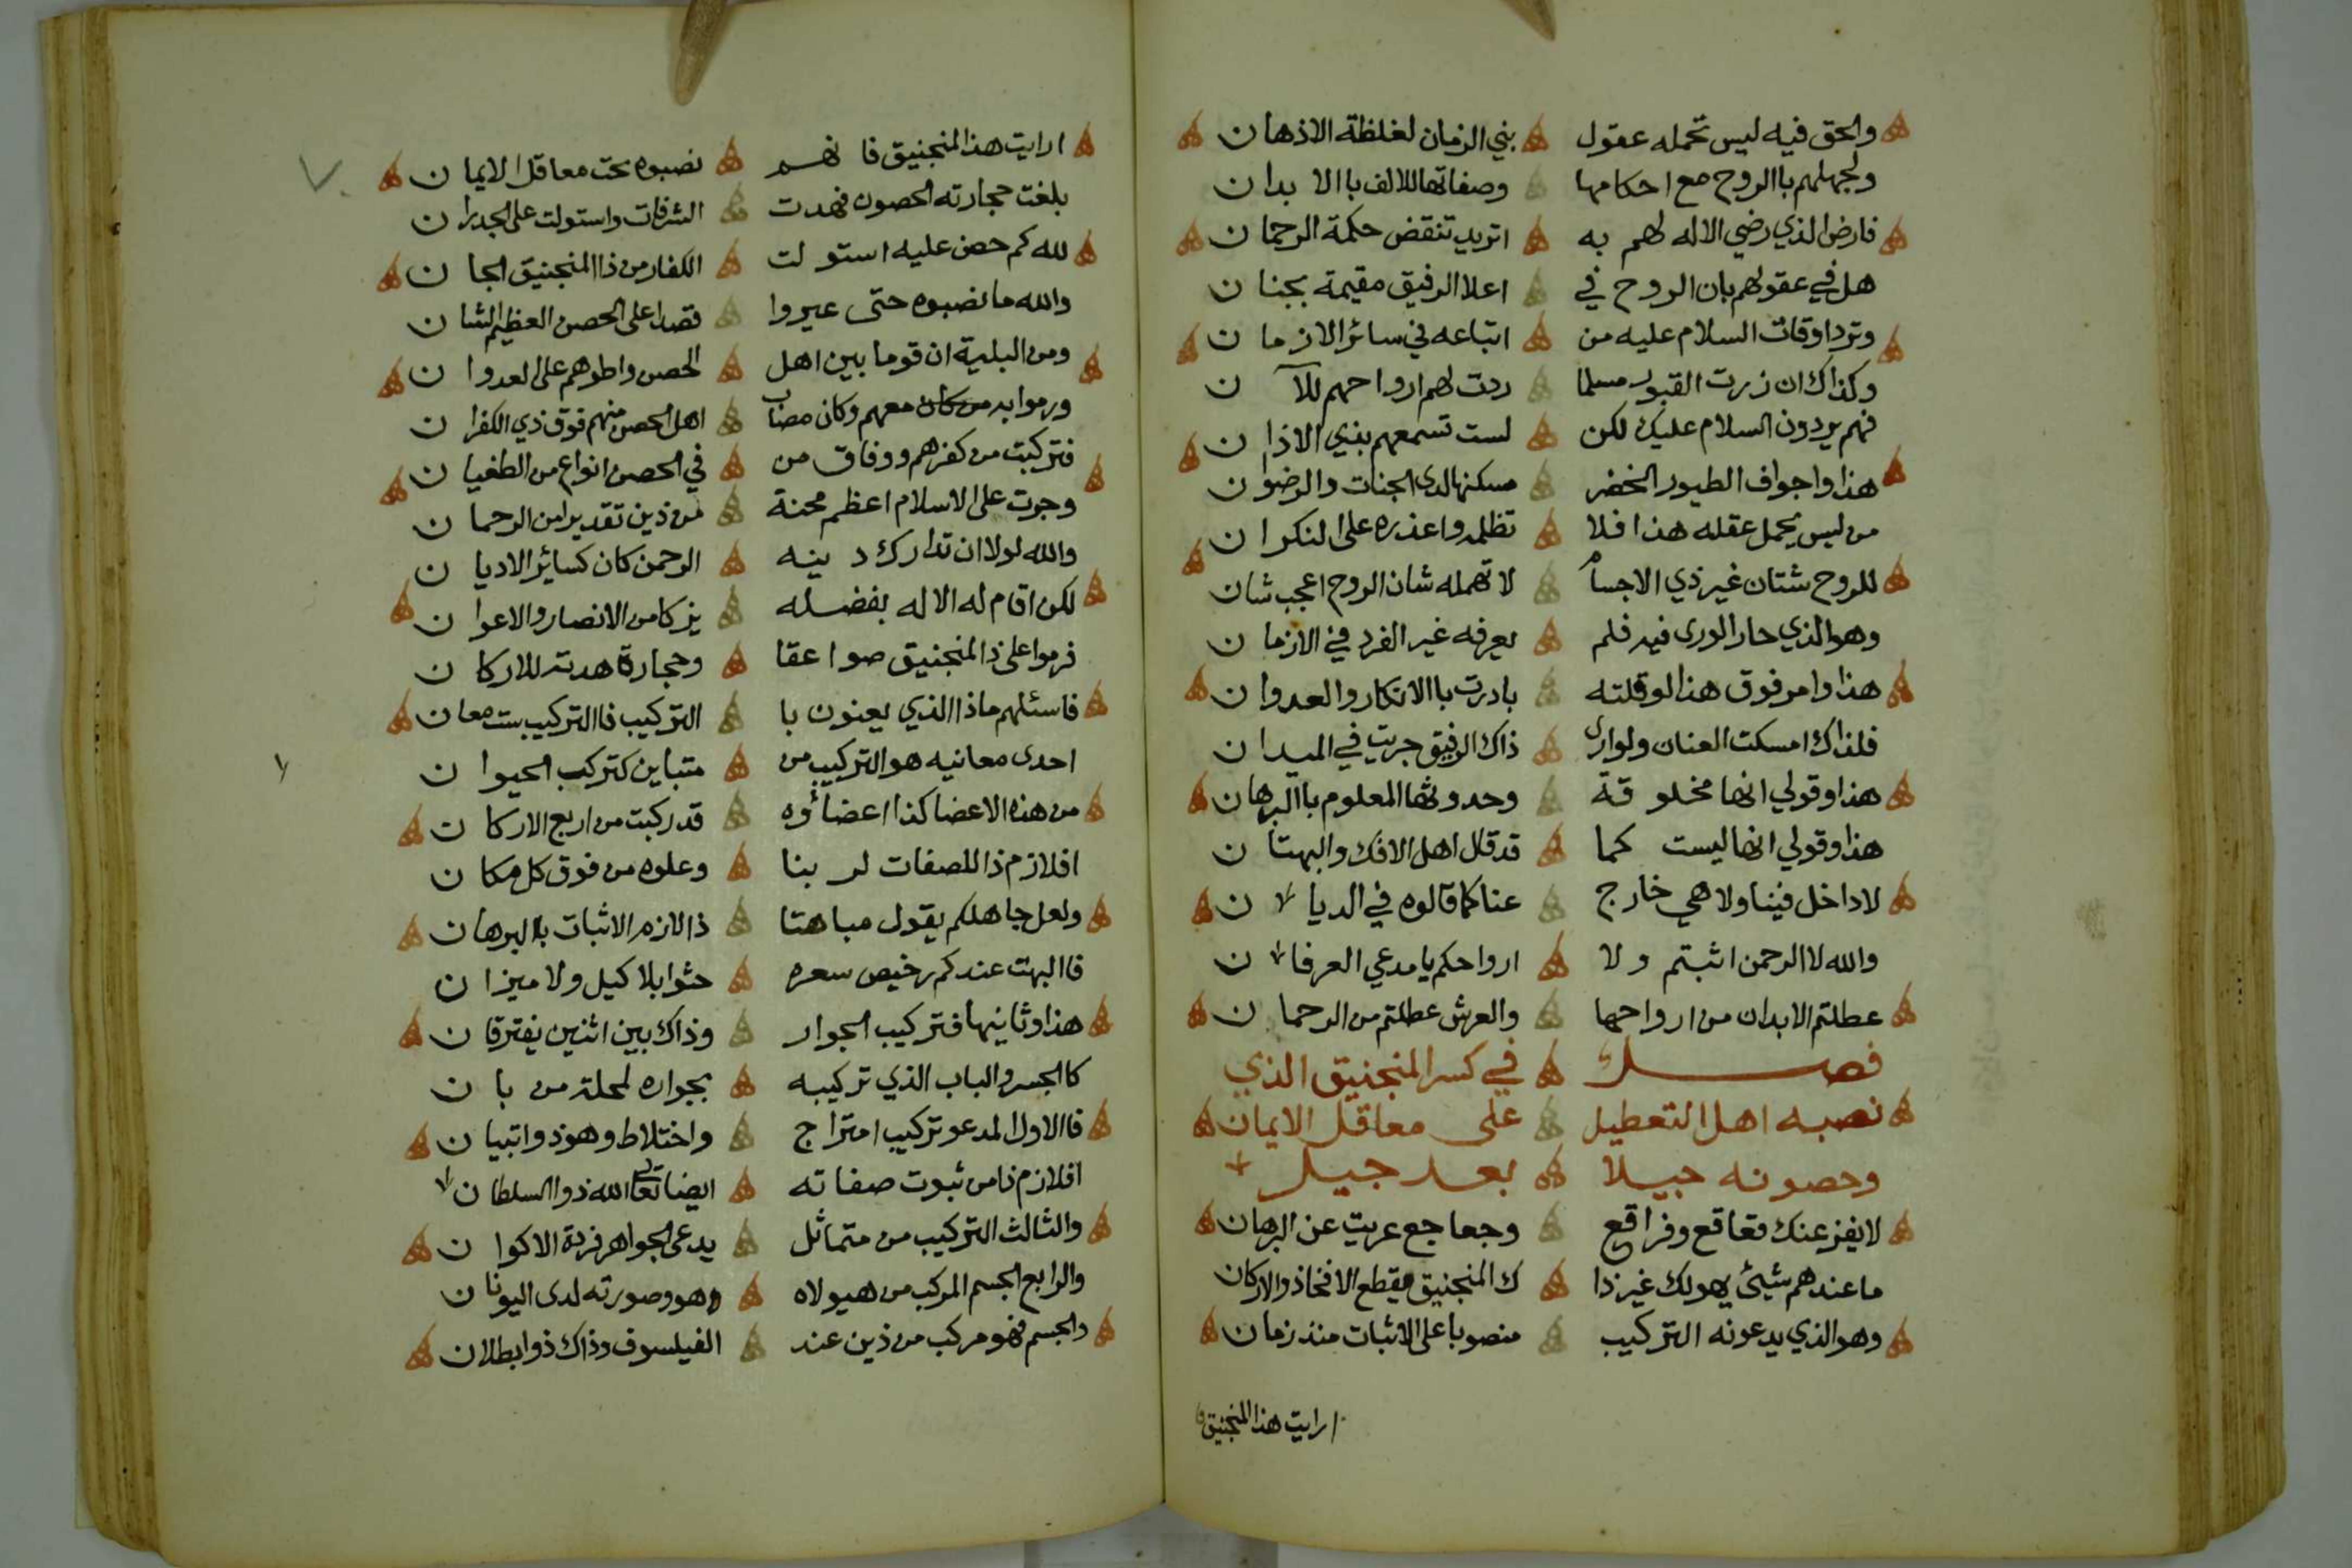 والحق فيه ليس تحمله عقول بني الزمان لغلظة الاذهان
ولجهلهم باالروح مع احكامها وصفاتها للالف باالا بدان
فارض الذي رضي الاله لهم به اتريد تنقض حكمة الرحمان
هل في عقولهم بان الروح في اعلا الرفيق مقيمة بجنان
وترد اوقات السلام عليه من اتباعه في سائر الازمان
وكذاك ان زرت القبور مسلما ردت لهم ارواحهم للآن
فهم يردون السلام عليك لكن لست تسمعهم بذي الاذان
هذا واجواف الطيور الخضر مسكنها لدى الجنات والرضوان
من ليس يحمل عقله هذا فلا تظلمه واعذره على النكران
للروح شتان غير ذي الاجسام لا تهمله شان الروح اعجب شان
وهو الذي حار الورى فيه فلم يعرفه غير الفرد في الازمان
هذا وامر فوق هذا لو قلته بادرت باالانكار والعدوان
فلذاك امسكت العنان ولو ارى ذاك الرفيق جريت في الميدان
هذا وقولي انها مخلوقة وحدوثها المعلوم باالبرهان
هذا وقولي انها ليست كما قد قال اهل الافك والبهتان
لا داخل فينا ولا هي خارج عنا كما قالوه في الديان
والله لا الرحمن اثبتم ولا ارواحكم يا مدعي العرفان
عطلتم الابدان من ارواحها والعرش عطلتم من الرحمان
فصل في كسر المنجنيق الذي
نصبه اهل التعطيل على معاقل الايمان
وحصونه جيلا بعد جيل
لا يفزعنك قعاقع وفراقع وجعاجع عريت عن البرهان
ما عندهم شيئ يهولك غير ذا ك المنجنيق مقطع الافخاذ والاركان
وهو الذي يدعونه التركيب منصوبا على الاثبات منذ زمان
ارايت هذا المنجنيق
ارايت هذا المنجنيق فانهم نصبوه تحت معاقل الايمان
بلغت حجارته الحصون فهدت الشرفات واستولت على الجدران
لله كم حصن عليه استولت الكفار من ذا المنجنيق الجان
والله ما نصبوه حتى عبروا قصدا على الحصن العظيم الشان
ومن البلية ان قوما بين اهل الحصن واطوهم على العدوان
ورموا به من كان معهم وكان مصاب اهل الحصن منهم فوق ذي الكفران
فتركبت من كفرهم ووفاق من في الحصن انواع من الطغيان
وجرت على الاسلام اعظم محنة من ذين تقديرا من الرحمان
والله لولا ان تدارك دينه الرحمن كان كسائر الاديان
لكن اقام له الاله بفضله يزكا من الانصار والاعوان
فرموا على ذا المنجنيق صواعقا وحجارة هدته للاركان
فاسئلهم ماذا الذي يعنون با التركيب فاالتركيب ست معان
احدى معانيه هو التركيب من متباين كتركب الحيوان
من هذه الاعضا كذا اعضاؤه قد ركبت من اربع الاركان
افلازم ذا للصفات لربنا وعلوه من فوق كل مكان
ولعل جاهلكم يقول مباهتا ذا لازم الاثبات باالبرهان
فاالبهت عندكم رخيص سعره حثوا بلا كيل ولا ميزان
هذا وثانيها فتركيب الجوار وذاك بين اثنين يفترقان
كاالجسر والباب الذي تركيبه بجواره لمحلة من بان
فاالاول المدعو تركيب امتزاج واختلاط وهو ذو اتبيان
افلازم ذا من ثبوت صفاته ايضا تعالى الله ذو السلطان
والثالث التركيب من متماثل يدعى الجواهر فردة الاكوان
والرابع الجسم المركب من هيولاه وهو وصورته لدى اليونان
والجسم فهو مركب من ذين عند الفيلسوف وذاك ذو ابطلان